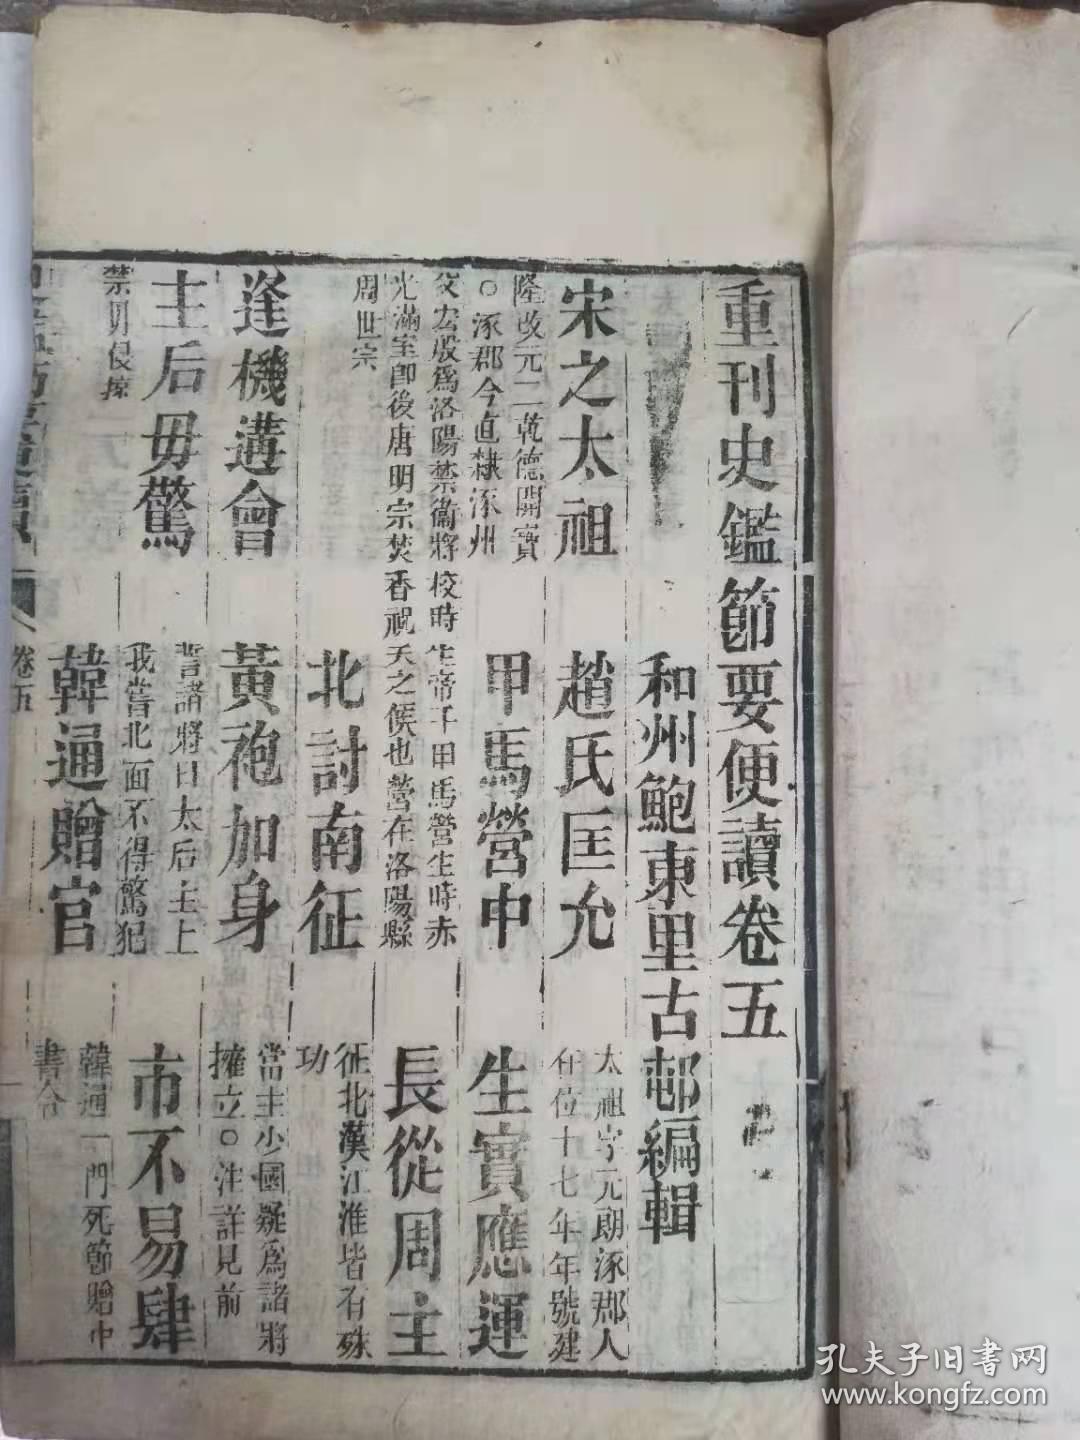 重刊史鑑節要便讀卷五
和州鮑東里古邨編輯
宋之太祖
趙氏匡允
太祖字元朗涿郡人
在位十七年年號建
隆改元二乾德開寶
〇涿郡今直隸涿州
甲馬營中
生實應運
父宏殷爲洛陽禁衞將校時生帝于甲馬營生時赤
光滿室卽後唐明宗焚香祝天之候也營在洛陽縣
長從周主
周世宗
北討南征
征北漢江淮皆有殊
功
逢機遘會
黃袍加身
當主少國疑爲諸將
擁立〇注詳見前
主后毋驚
誓諸將曰太后主上
我嘗北面不得驚犯
市不易肆
禁侵掠
韓通贈官
韓通一門死節贈中
書令
卷五
孔夫子旧書网
www.kongfz.com